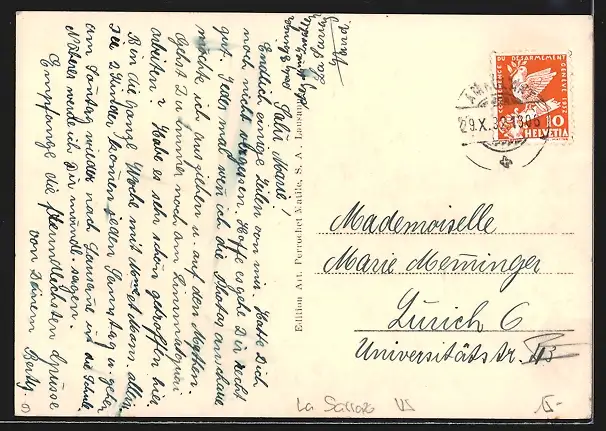 La Sarraz
Vaud.
Salü Marie!
Endlich einige Zeilen von mir. Hatte Dich
noch nicht vergessen. Hoffe es gehe Dir recht
gut. Jedes mal wen ich die Photos anschaue
möchte ich ausziehen u. auf den Mythen.
Gehst Du immer noch am Limmatquai
arbeiten? Habe es sehr schön getroffen hier.
Bin die ganze Woche mit allein
Die 2 Kinder kommen jeden Samstag u. gehen
am Sontag wieder nach Lausanne in die Schule
Näheres werde ich Dir mündl. sagen.
Empfange die freundlichsten Grüsse
von Deinem
Edition Art. Perrochet Matile, S. A. Lausanne
CONFERENCE DU DESARMEMENT GENEVE 1932
10
HELVETIA
Mademoiselle
Marie Memminger
Zürich 6
Universitätstr.
La Sarraz VD
15.-